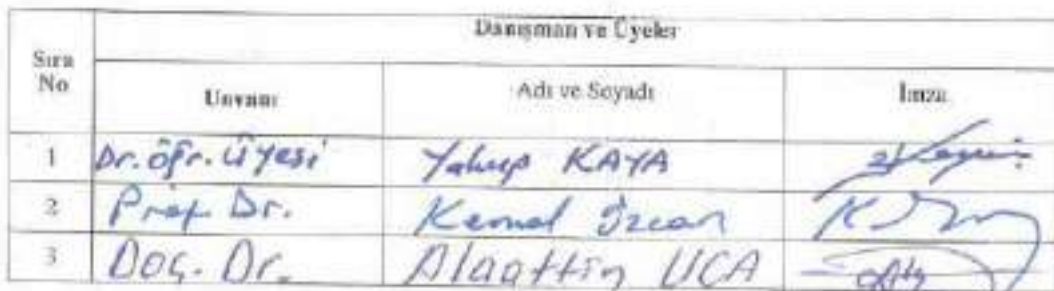 Danışman ve Üyeler
Sıra No
Unvanı Adı ve Soyadı İmza
1 Dr. öğr. üyesi Yakup KAYA
2 Prof. Dr. Kemal Özcan
3 Doç. Dr. Alaattin UCA